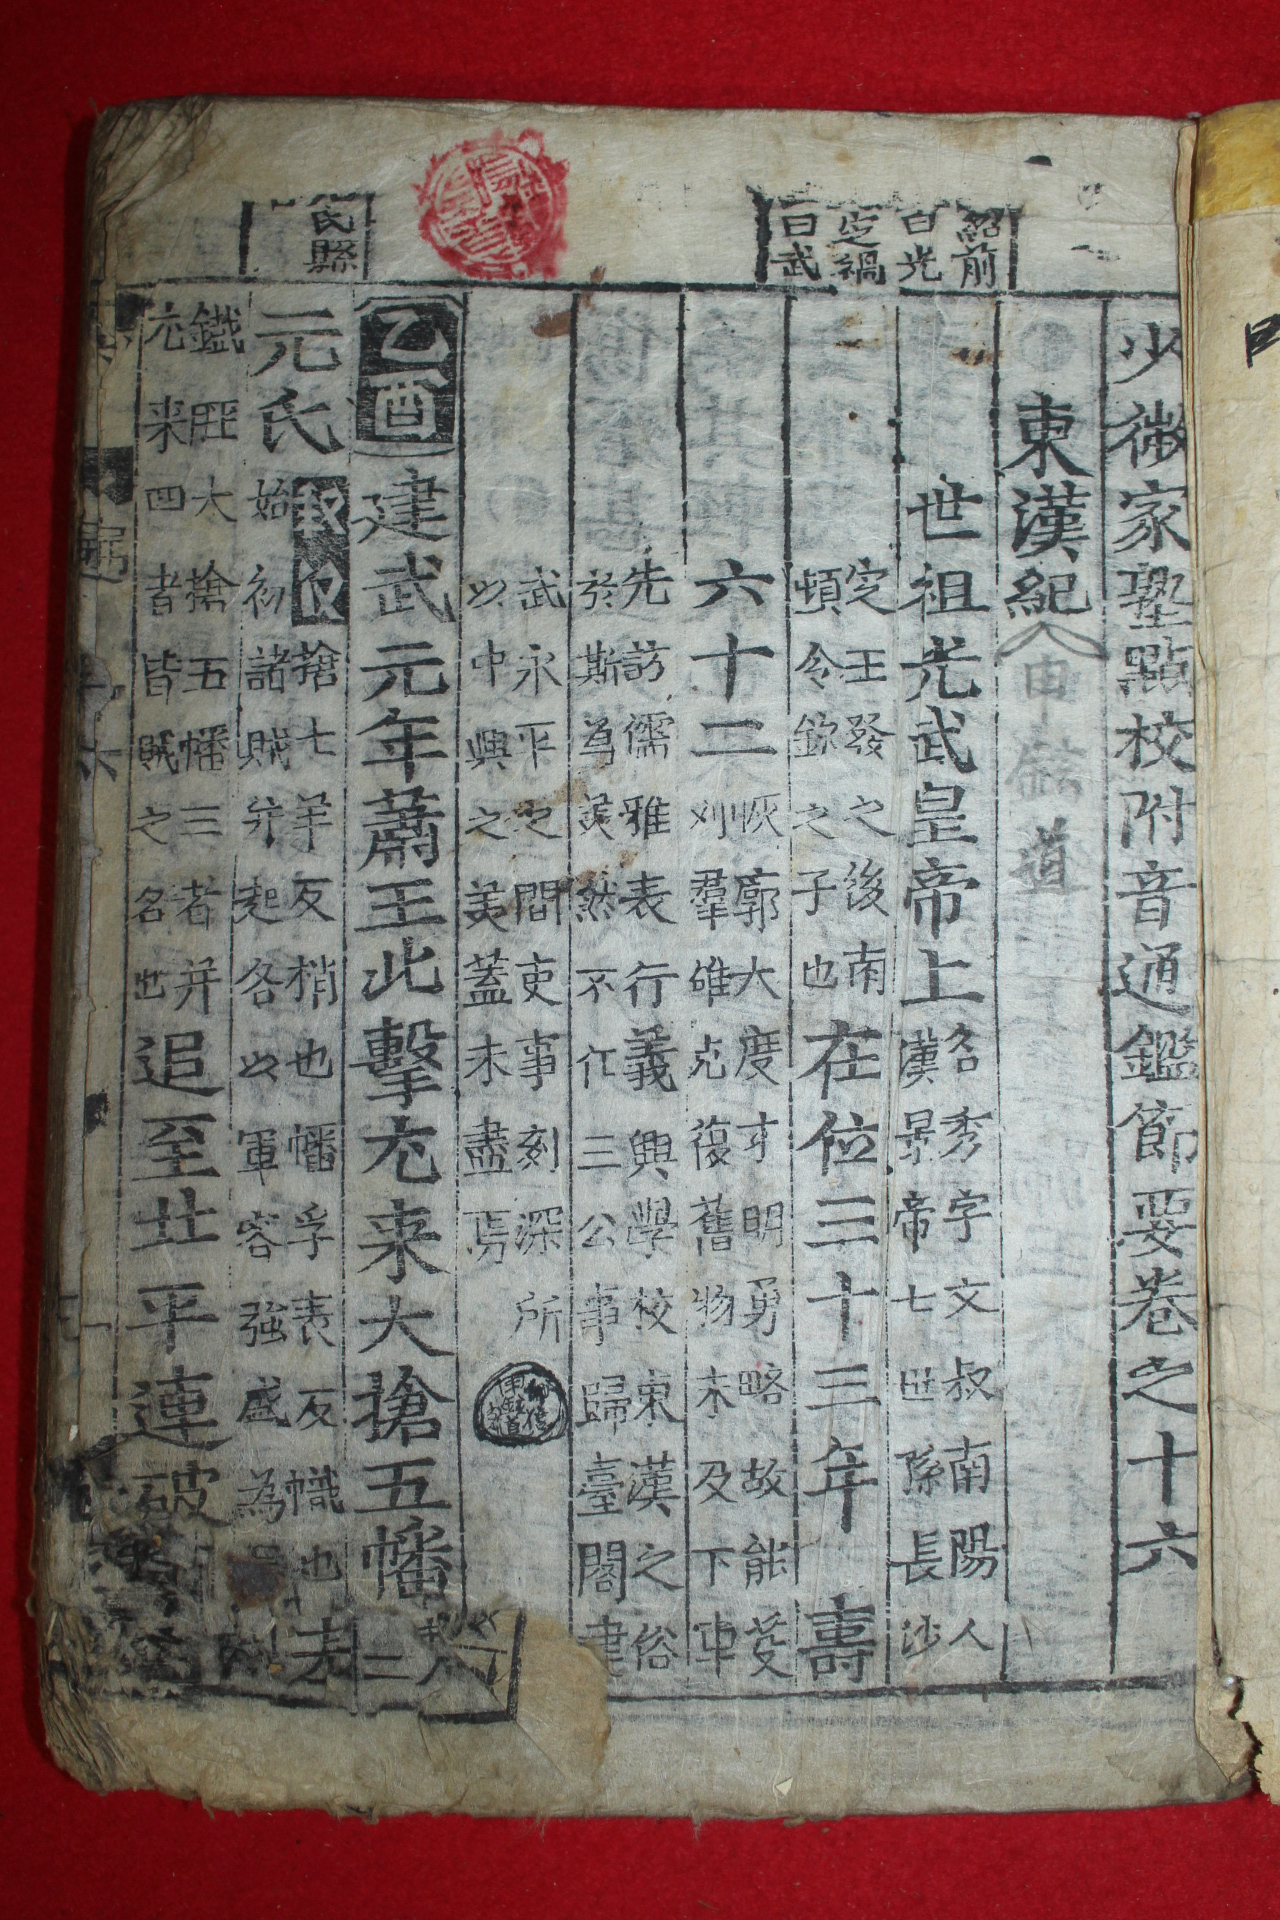 少微家塾點校附音通鑑節要卷之十六
東漢紀
申 道
紹前
曰光
定禍
曰武
世祖光武皇帝上
名秀字文叔南陽人
漢景帝七世孫長沙
定王發之後南
頓令欽之子也
在位三十三年
壽
六十二
恢廓大度才明勇略故能芟
刈群雄克復舊物未及下車
先訪儒雅表行義興學校東漢之俗
於斯為美然不任三公事歸臺閣建
武永平之間吏事刻深所
以中興之美蓋未盡焉
乙酉
建武元年蕭王北擊尤来大搶五幡
氏縣
元氏
搶七羊反梢也幡孚袁反幟也
始初諸賊并起各以軍容強盛為
鐵脛大搶五幡三者并
尤来四者皆賊之名也
追至北平連破